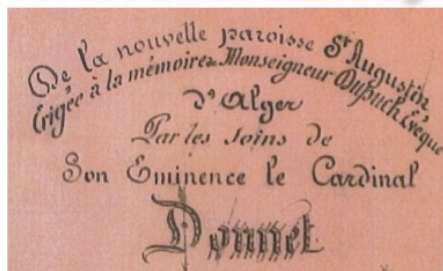 De la nouvelle paroisse St Augustin
Erigée à la mémoire de Monseigneur Dupuch Evêque
d'Alger
Par les soins de
Son Eminence le Cardinal
Donnet